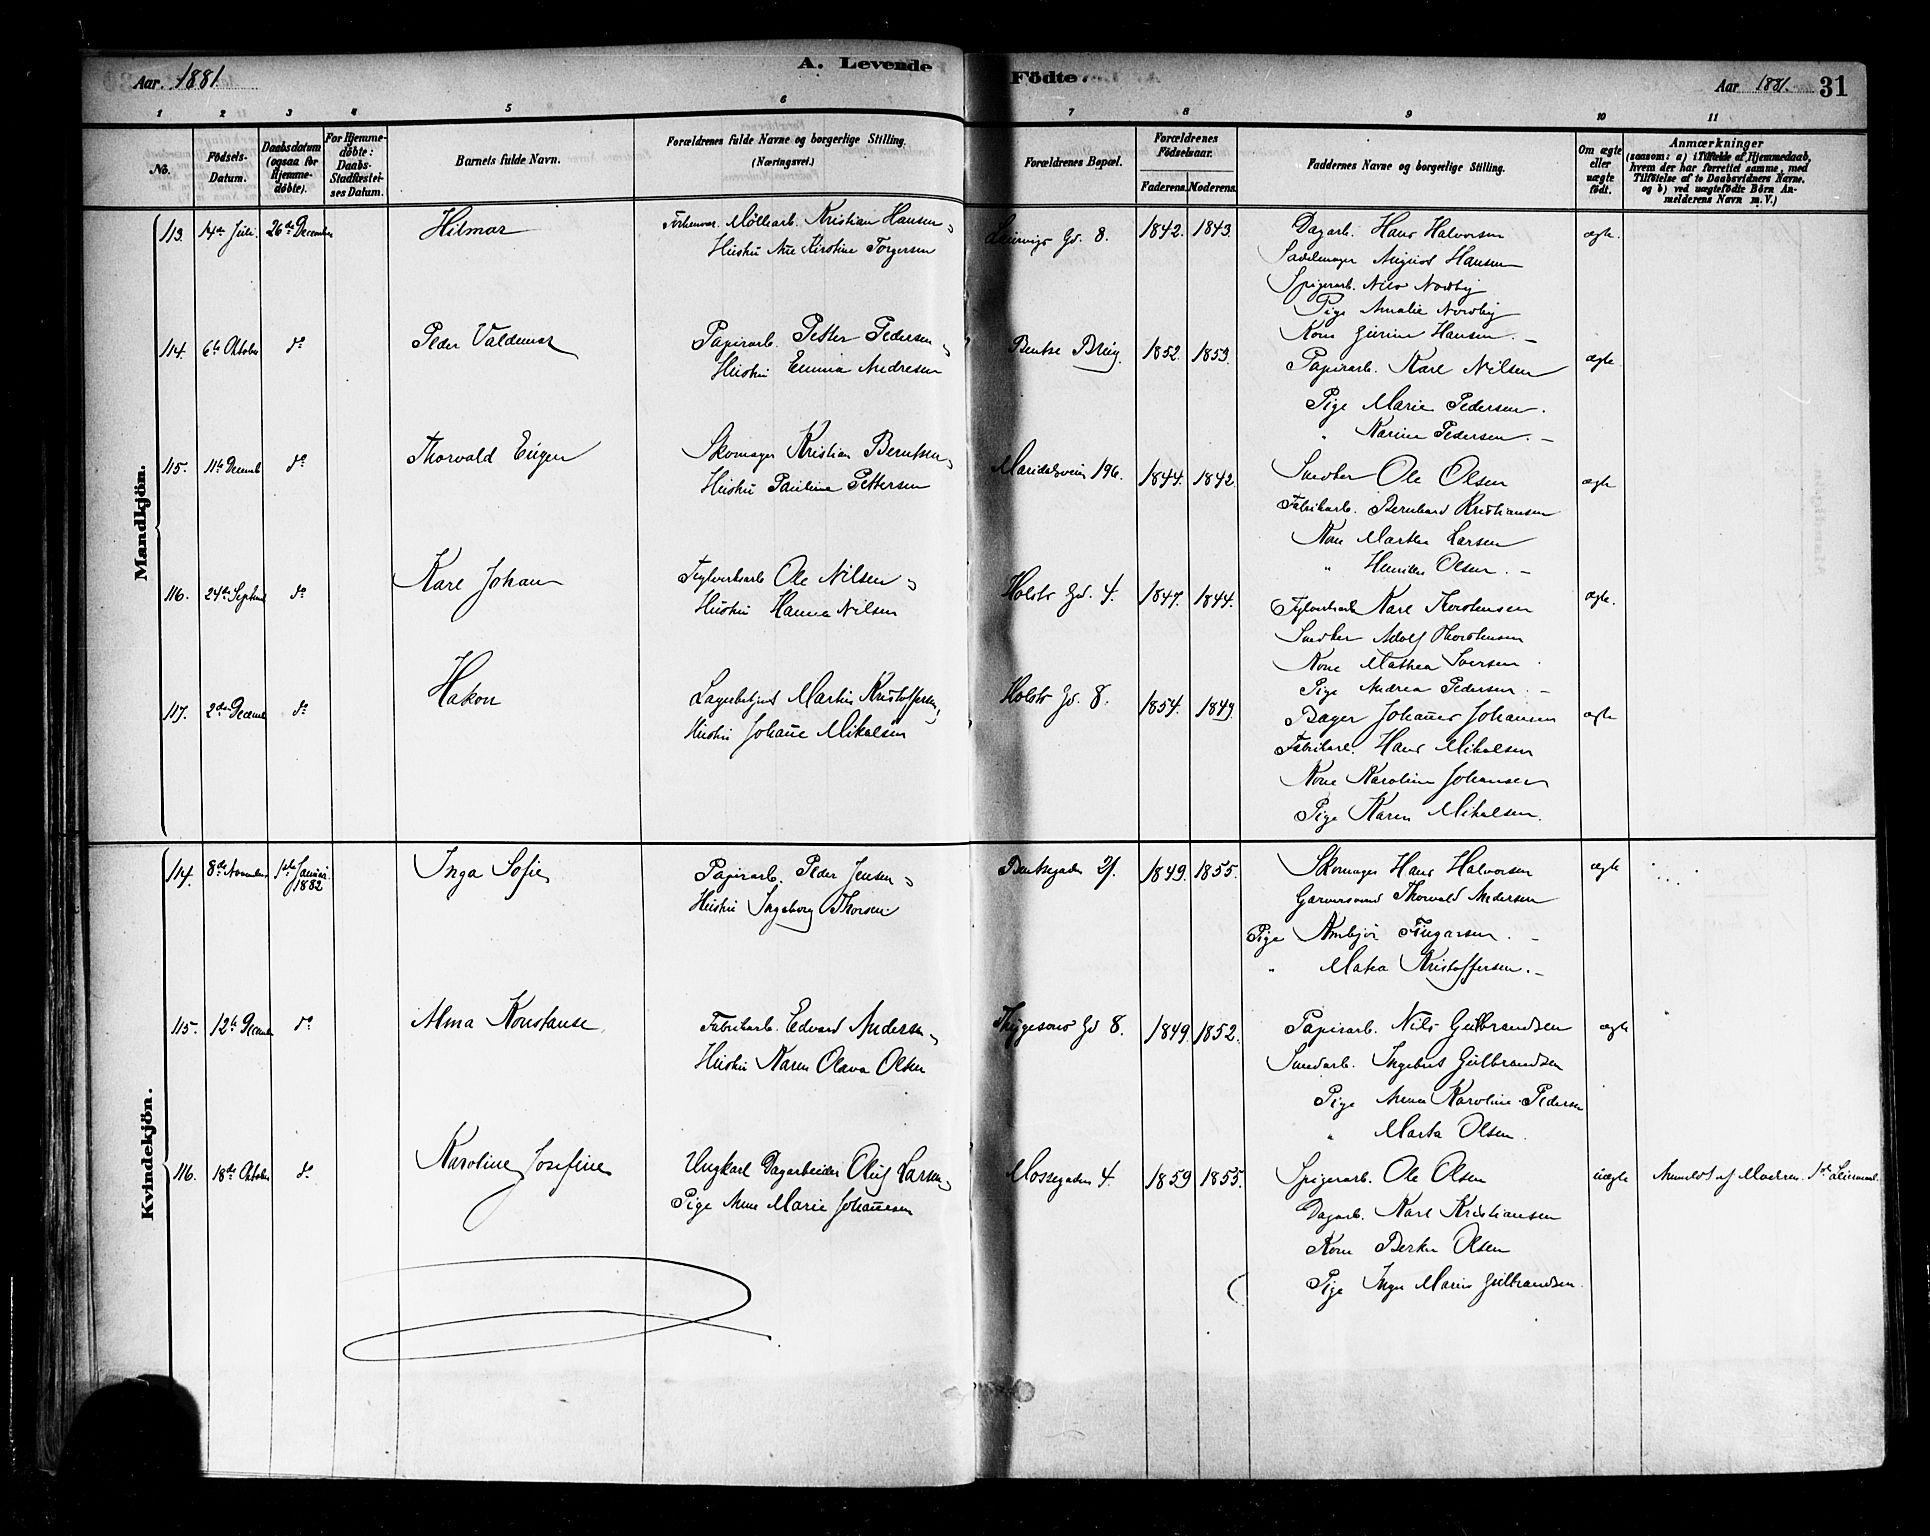 Aar 1881. A. Levende Fødte Aar 1881. 31
1 2 3 4 5 6 7 8 9 10 11
No. Fødsels-Datum. Daabsdatum (ogsaa for Hjemmedøbte). For Hjemmedøbte: Daabs-Stadfæstelses Datum. Barnets fulde Navn. Forældrenes fulde Navne og borgerlige Stilling. (Næringsvei.) Forældrenes Bopæl. Forældrenes Fødselsaar. Faderens. Moderens. Faddernes Navne og borgerlige Stilling. Om ægte eller uægte født. Anmærkninger (saasom: a) i Tilfælde af Hjemmedaab, hvem der har forrettet samme, med Tilføielse af to Daabsvidners Navne, og b) ved uægtefødte Børn Anmelderens Navn m. V.)
Mandkjön.
113. 14de Juli. 26de December Hilmar Forhenvær. Møllearb. Kristian Hansen, Leirvigs Gd. 8. 1842. 1843. Dagarb. Hans Halvorsen ægte.
Hustru Ane Kirstine Torgersen Sadelmager August Hansen
Spigerarb. Nils Nordby
Pige Amalie Nordby
Kone Gurine Hansen.
114. 6te Oktober do Peder Valdemar Papirarb. Petter Pedersen, Bentse Brug. 1852. 1853. Papirarb. Karl Nilsen ægte
Hustru Emma Andresen
Pige Marie Pedersen.
" Karine Pedersen.
115. 11te Decemb do Thorvald Eugen Skomager Kristian Berntsen, Maridalsveien 196. 1844. 1842. Snedker Ole Olsen ægte
Hustru Pauline Pettersen Fabrikarb. Bernhard Kristiansen
Kone Marthe Larsen
" Henrikke Olsen.
116. 24de Septemb do Karl Johan Teglverksarb Ole Nilsen, Holsts Gd. 4. 1847. 1844. Teglverksarb Karl Thorstensen ægte.
Hustru Hanna Nilsen Snedker Adolf Thorstensen
Kone Mathea Iversen.
Pige Andrea Pedersen.
117. 2den Decemb do Hakon Lagerbetjent Martin Kristoffersen, Holsts Gd. 8. 1854. 1849. Bager Johannes Johansen ægte
Hustru Johanne Mikalsen Fabrikarb. Hans Mikalsen
Kone Karoline Johansen
Pige Karen Mikalsen.
Kvindekjön.
114. 8de November 1ste Januar 1882 Inga Sofie Papirarb. Peder Jensen, Bentsegaden 21. 1849. 1855. Skomager Hans Halvorsen ægte
Hustru Ingeborg Thorsen. Garversvend Thorvald Andersen
Pige Ambjør Fingarsen.
" Matea Kristoffersen.
115. 12te Decemb do Alma Konstanse Fabrikarb. Edvard Andersen, Thygesons Gd 8. 1849. 1852. Papirarb. Nils Gulbrandsen ægte
Hustru Karen Olava Olsen Smedarb. Ingebret Gulbrandsen
Pige Anna Karoline Pedersen
" Marta Olsen.
116. 18de Oktober do Karoline Josefine Ungkarl Dagarbeider Oluf Larsen, Mossegaden 4. 1859 1855. Spigerarb. Ole Olsen uægte Anmeldt af Moderen. 1ste Leiermaal.
Pige Anne Marie Johannesen Dagarb. Karl Kristiansen
Kone Berthe Olsen
Pige Inga Marie Gulbrandsen.